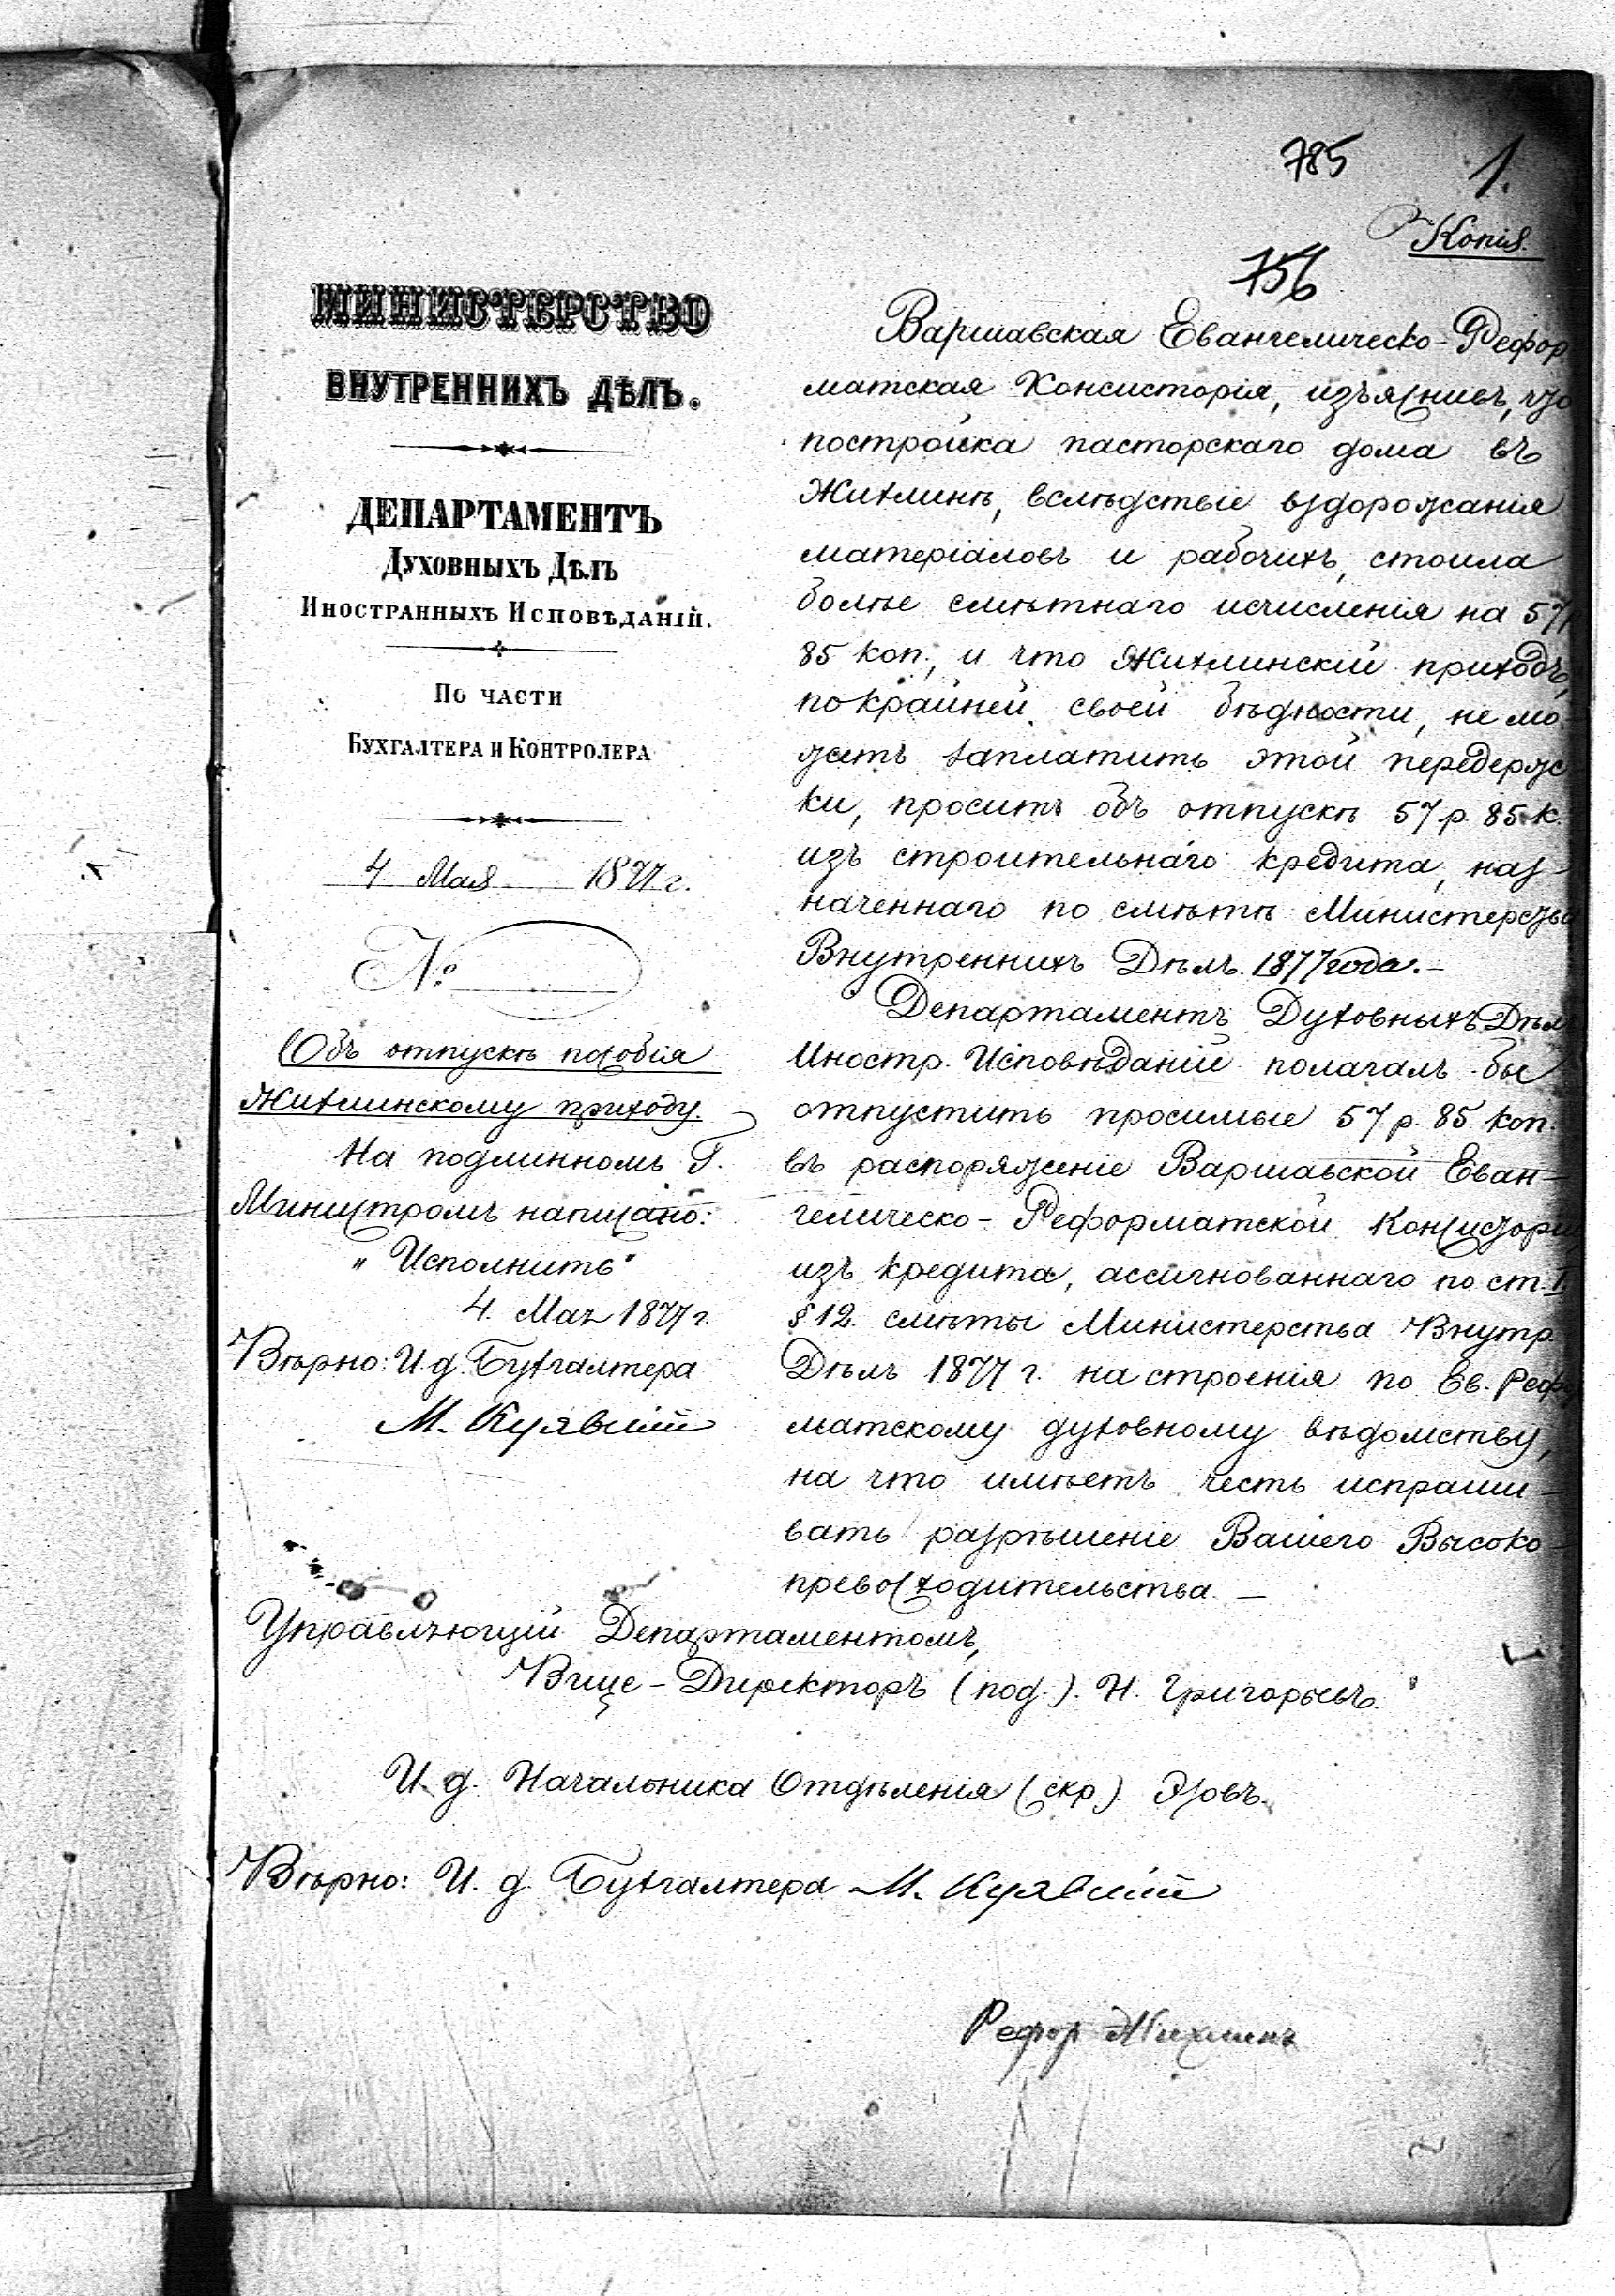 785
1.
Копія.
756
МИНИСТЕРСТВО
ВНУТРЕННИХЪ ДѢЛЪ.
ДЕПАРТАМЕНТЪ
ДУХОВНЫХЪ ДѢЛЪ
ИНОСТРАННЫХЪ ИСПОВѢДАНІЙ.
ПО ЧАСТИ
БУХГАЛТЕРА И КОНТРОЛЕРА
4 Мая 1877 г.
№
Объ отпускѣ пособія
Жихлинскому приходу.
На подлинномъ Г.
Министромъ написано:
"Исполнить"
4 Мая 1877 г.
Вѣрно: И. д. Бухгалтера
М. Куявскій
Варшавская Евангелическо-Рефор
матская Консисторія, изъяснивъ, что
постройка пасторскаго дома въ
Жихлинѣ, вслѣдствіе вздорожанія
матеріаловъ и рабочихъ, стоила
болѣе смѣтнаго исчисленія на 57
85 коп., и что Жихлинскій приходъ,
по крайней своей бѣдности, не мо
жетъ заплатить этой передерж
ки, проситъ объ отпускѣ 57 р. 85 к.
изъ строительнаго кредита, наз-
наченнаго по смѣтѣ Министерства
Внутреннихъ Дѣлъ 1877 года.-
Департаментъ Духовныхъ Дѣлъ
Иностр. Исповѣданій полагалъ бы
отпустить просимые 57 р. 85 коп.
въ распоряженіе Варшавской Еван-
гелическо-Реформатской Консисторіи
изъ кредита, ассигнованнаго по ст. I
§ 12. смѣты Министерства Внутр.
Дѣлъ 1877 г. на строенія по Ев. Рефор
матскому духовному вѣдомству,
на что имѣетъ честь испраши-
вать разрѣшеніе Вашего Высоко-
превосходительства. -
Управляющій Департаментомъ,
Вице-Директоръ (под.). Н. Григорьевъ.
И. д. Начальника Отдѣленія (скр).
Вѣрно: И. д. Бухгалтера М. Куявскій
Рефор Жихлинъ